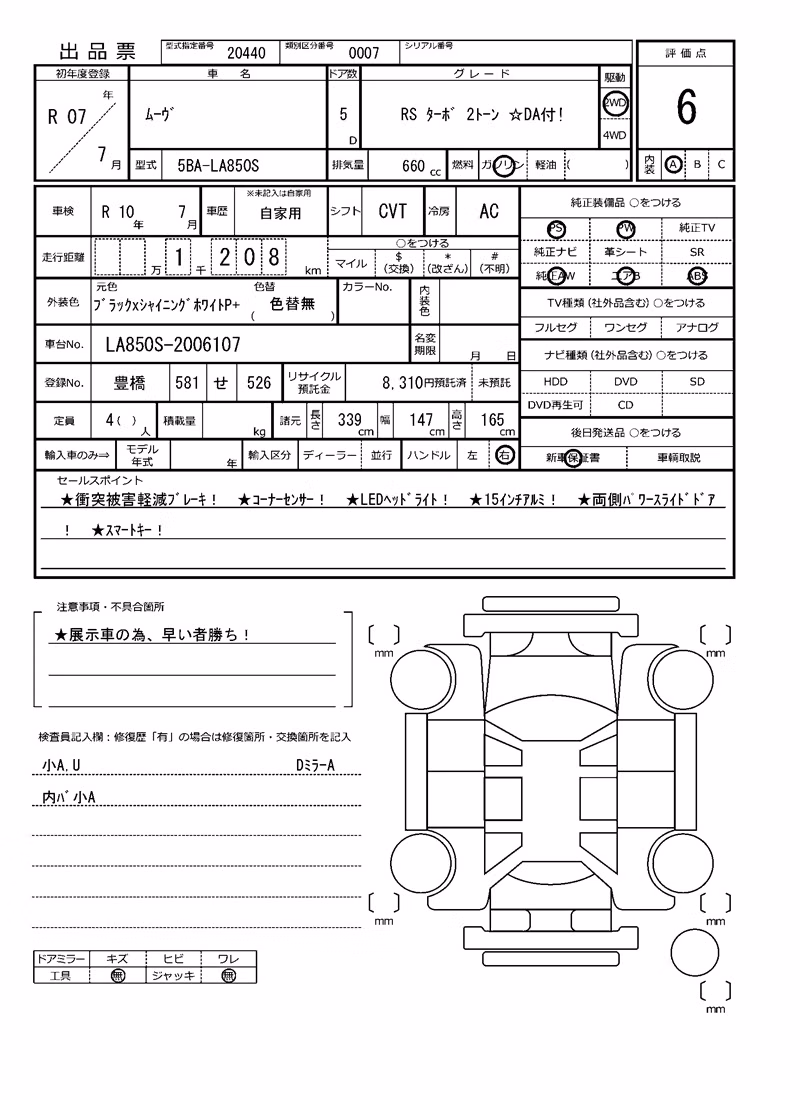 出品票 型式指定番号 20440 類別区分番号 0007 シリアル番号
評価点
6
初年度登録 車名 ドア数 グレード 駆動
R 07 年 7 月 ムーヴ 5 D RS ターボ 2トーン ☆DA付! 2WD 4WD
型式 5BA-LA850S 排気量 660 cc 燃料 ガソリン 軽油 ( ) 内装 A B C
車検 R 10 年 7 月 車歴 ※未記入は自家用 自家用 シフト CVT 冷房 AC
走行距離 万 1 千 2 0 8 km ○をつける
マイル $(交換) *(改ざん) #(不明)
外装色 元色 ブラックxシャイニングホワイトP+ 色替 ( 色替無 ) カラーNo. 内装色
車台No. LA850S-2006107 名変期限 月 日
登録No. 豊橋 581 せ 526 リサイクル預託金 8,310円預託済 未預託
定員 4( ) 人 積載量 kg 諸元 長さ 339 cm 幅 147 cm 高さ 165 cm
輸入車のみ⇒ モデル年式 年 輸入区分 ディーラー 並行 ハンドル 左 右
純正装備品 ○をつける
PS PW 純正TV
純正ナビ 革シート SR
純正AW エアB ABS
TV種類(社外品含む)○をつける
フルセグ ワンセグ アナログ
ナビ種類(社外品含む)○をつける
HDD DVD SD
DVD再生可 CD
後日発送品 ○をつける
新車保証書 車輌取説
セールスポイント
★衝突被害軽減ブレーキ! ★コーナーセンサー! ★LEDヘッドライト! ★15インチアルミ! ★両側パワースライドドア
! ★スマートキー!
注意事項・不具合箇所
★展示車の為、早い者勝ち!
検査員記入欄:修復歴「有」の場合は修復箇所・交換箇所を記入
小A,U DミラーA
内バ小A
ドアミラー キズ ヒビ ワレ
工具 無 ジャッキ 無
mm mm
mm mm
mm